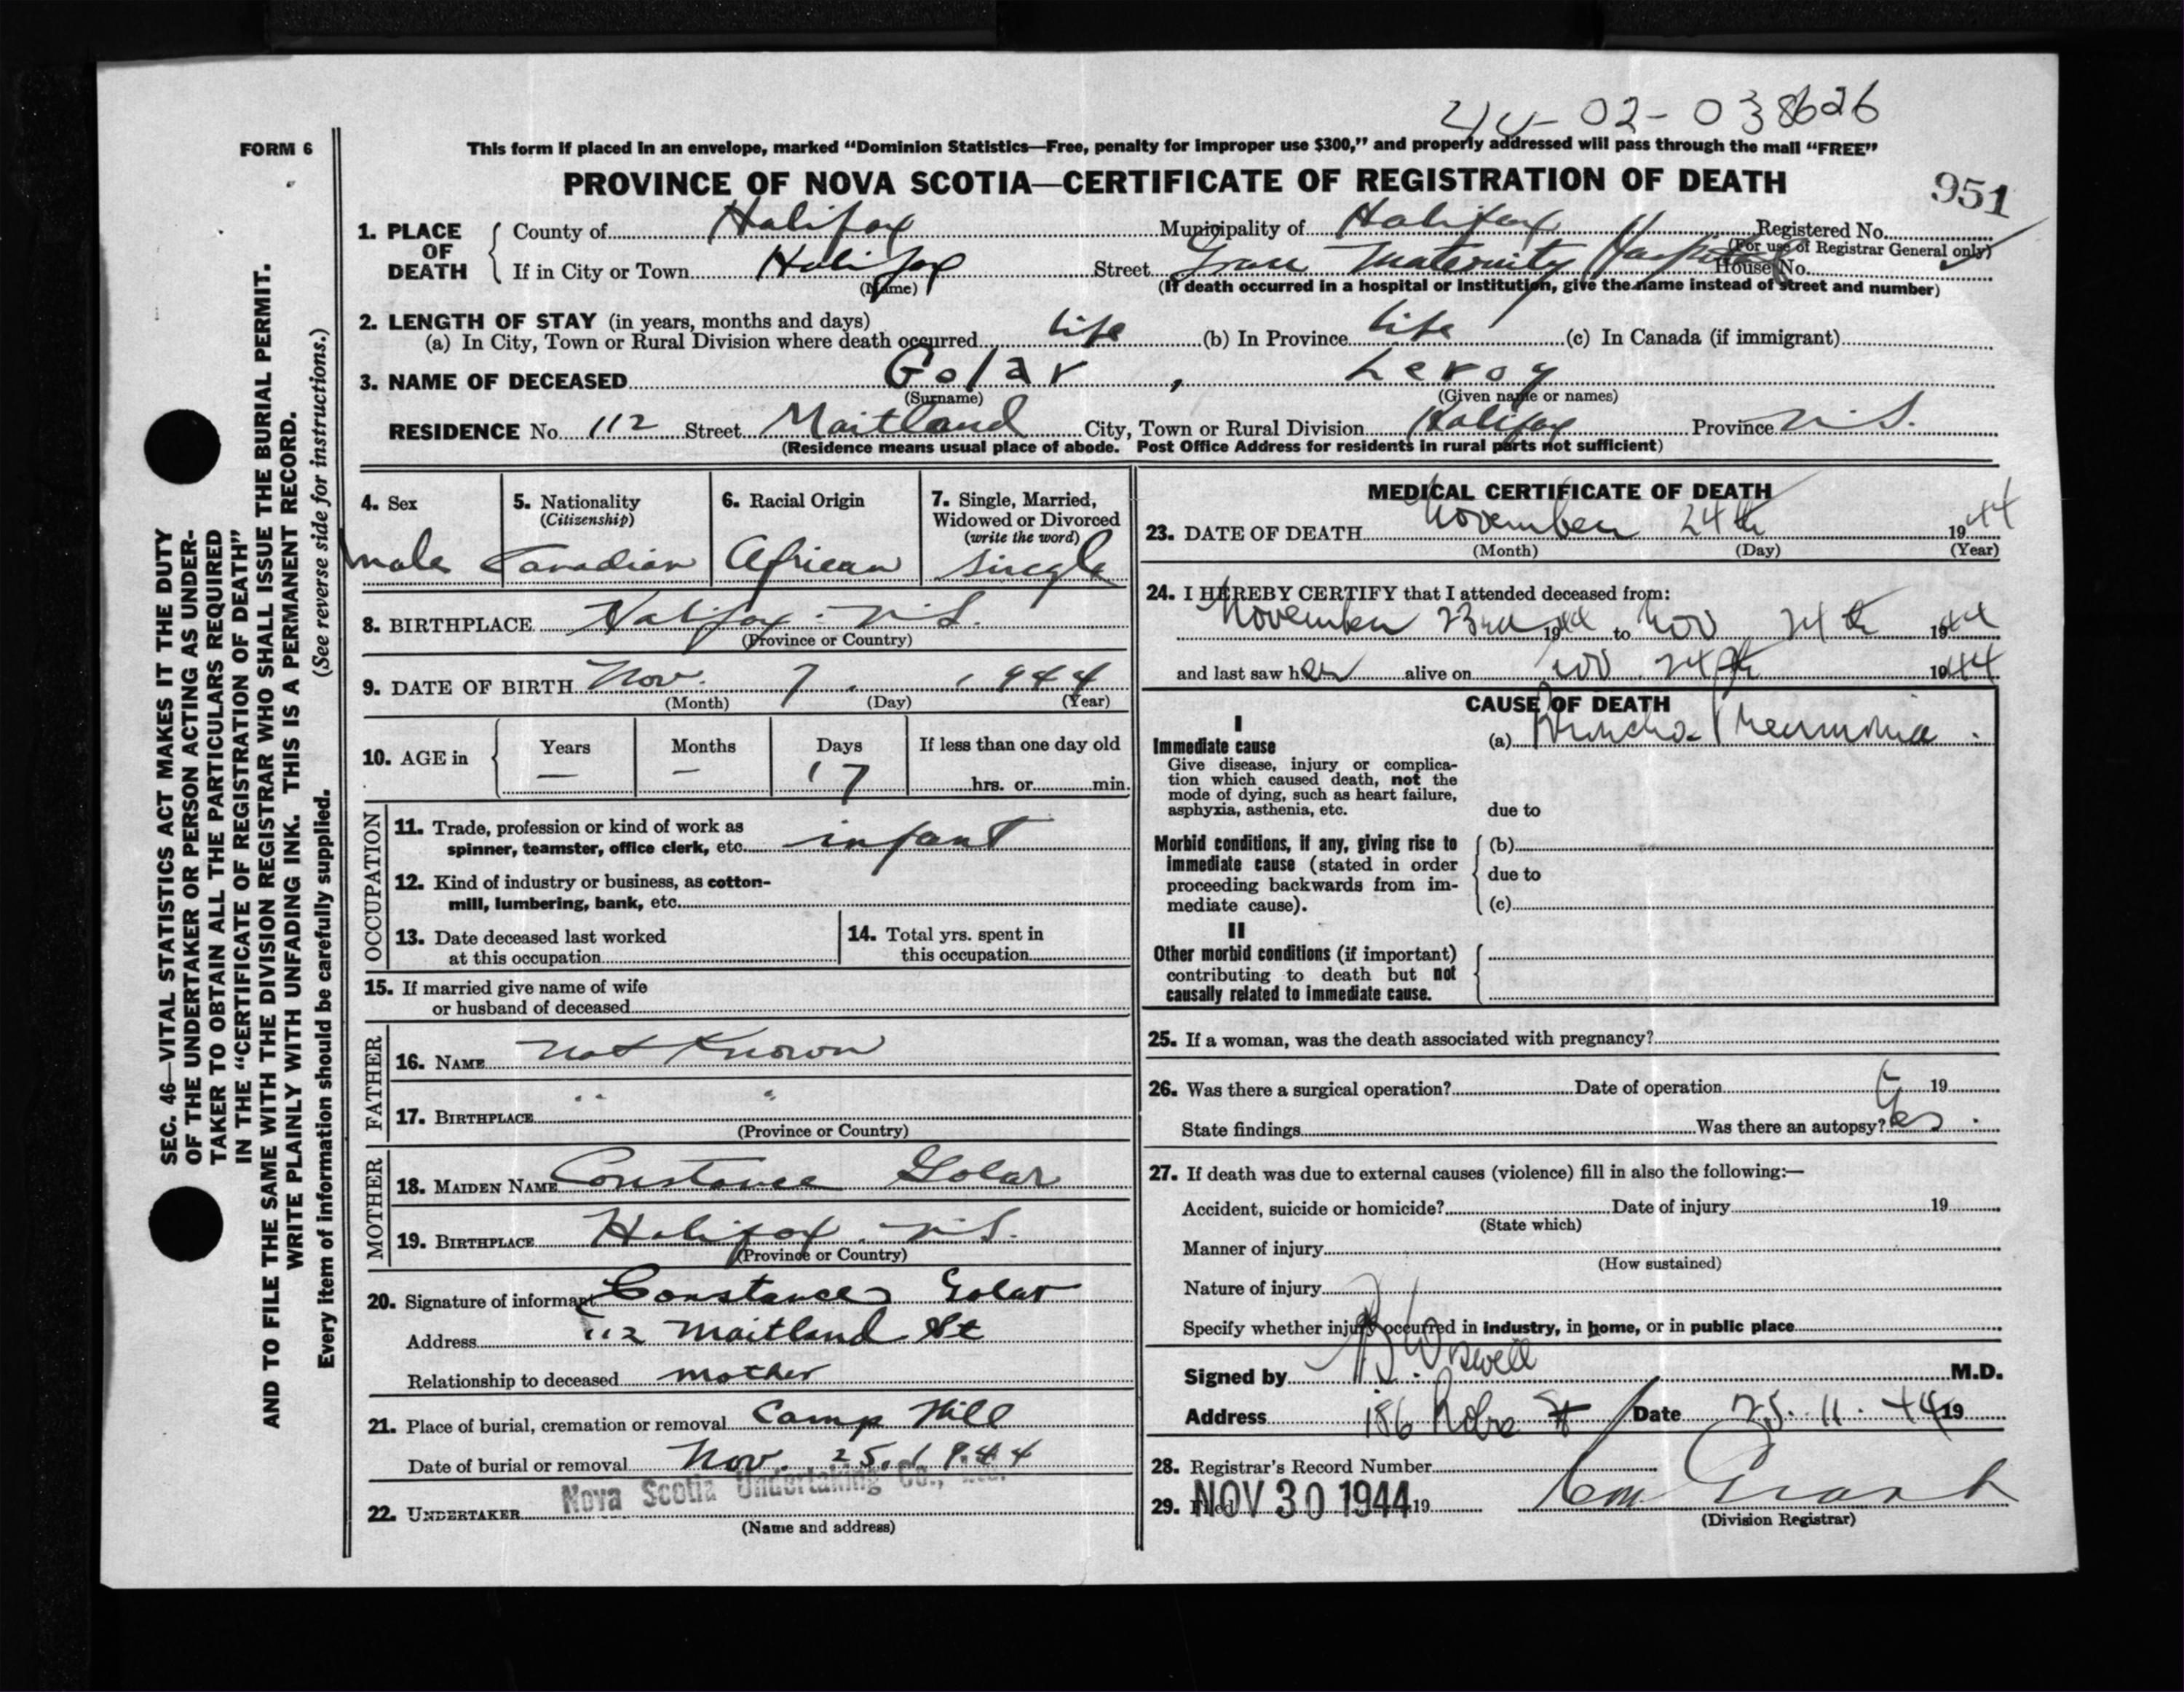 44-02-038626
FORM 6
This form if placed in an envelope, marked “Dominion Statistics—Free, penalty for improper use $300,” and properly addressed will pass through the mail “FREE”
PROVINCE OF NOVA SCOTIA—CERTIFICATE OF REGISTRATION OF DEATH
951
1. PLACE OF DEATH
County of Halifax Municipality of Halifax Registered No.
(For use of Registrar General only)
If in City or Town Halifax Street Grace Maternity Hospital House No.
(Name) (If death occurred in a hospital or Institution, give the name instead of street and number)
2. LENGTH OF STAY (in years, months and days)
(a) In City, Town or Rural Division where death occurred life (b) In Province life (c) In Canada (if immigrant)
3. NAME OF DECEASED Golar , Leroy
(Surname) (Given name or names)
RESIDENCE No. 112 Street Maitland City, Town or Rural Division Halifax Province N.S.
(Residence means usual place of abode. Post Office Address for residents in rural parts not sufficient)
SEC. 46—VITAL STATISTICS ACT MAKES IT THE DUTY
OF THE UNDERTAKER OR PERSON ACTING AS UNDER-
TAKER TO OBTAIN ALL THE PARTICULARS REQUIRED
IN THE “CERTIFICATE OF REGISTRATION OF DEATH”
AND TO FILE THE SAME WITH THE DIVISION REGISTRAR WHO SHALL ISSUE THE BURIAL PERMIT.
WRITE PLAINLY WITH UNFADING INK. THIS IS A PERMANENT RECORD.
Every item of information should be carefully supplied. (See reverse side for instructions.)
4. Sex
male
5. Nationality
(Citizenship)
Canadian
6. Racial Origin
African
7. Single, Married,
Widowed or Divorced
(write the word)
Single
8. BIRTHPLACE Halifax N.S.
(Province or Country)
9. DATE OF BIRTH Nov. 7. 1944
(Month) (Day) (Year)
10. AGE in
Years Months Days If less than one day old
— — 17 hrs. or min.
OCCUPATION
11. Trade, profession or kind of work as
spinner, teamster, office clerk, etc. infant
12. Kind of industry or business, as cotton-
mill, lumbering, bank, etc.
13. Date deceased last worked
at this occupation
14. Total yrs. spent in
this occupation
15. If married give name of wife
or husband of deceased
FATHER
16. NAME Not Known
17. BIRTHPLACE " "
(Province or Country)
MOTHER
18. MAIDEN NAME Constance Golar
19. BIRTHPLACE Halifax. N.S.
(Province or Country)
20. Signature of informant Constance Golar
Address 112 Maitland St
Relationship to deceased mother
21. Place of burial, cremation or removal Camp Hill
Date of burial or removal Nov. 25. 1944
22. UNDERTAKER Nova Scotia Undertaking Co., Ltd.
(Name and address)
MEDICAL CERTIFICATE OF DEATH
23. DATE OF DEATH November 24th 1944
(Month) (Day) (Year)
24. I HEREBY CERTIFY that I attended deceased from:
November 23rd 1944 to Nov 24th 1944
and last saw her alive on Nov. 24th 1944
CAUSE OF DEATH
I
Immediate cause
Give disease, injury or complica-
tion which caused death, not the
mode of dying, such as heart failure,
asphyxia, asthenia, etc.
(a) Broncho-Pneumonia.
due to
Morbid conditions, if any, giving rise to
immediate cause (stated in order
proceeding backwards from im-
mediate cause).
(b)
due to
(c)
II
Other morbid conditions (if important)
contributing to death but not
causally related to immediate cause.
25. If a woman, was the death associated with pregnancy?
26. Was there a surgical operation? Date of operation 19
State findings Was there an autopsy? Yes.
27. If death was due to external causes (violence) fill in also the following:—
Accident, suicide or homicide? Date of injury 19
(State which)
Manner of injury
(How sustained)
Nature of injury
Specify whether injury occurred in industry, in home, or in public place
Signed by Wiswell M.D.
Address 186 Robie St Date 25. 11. 44 19
28. Registrar's Record Number
29. Filed NOV 30 1944 19
Grant
(Division Registrar)